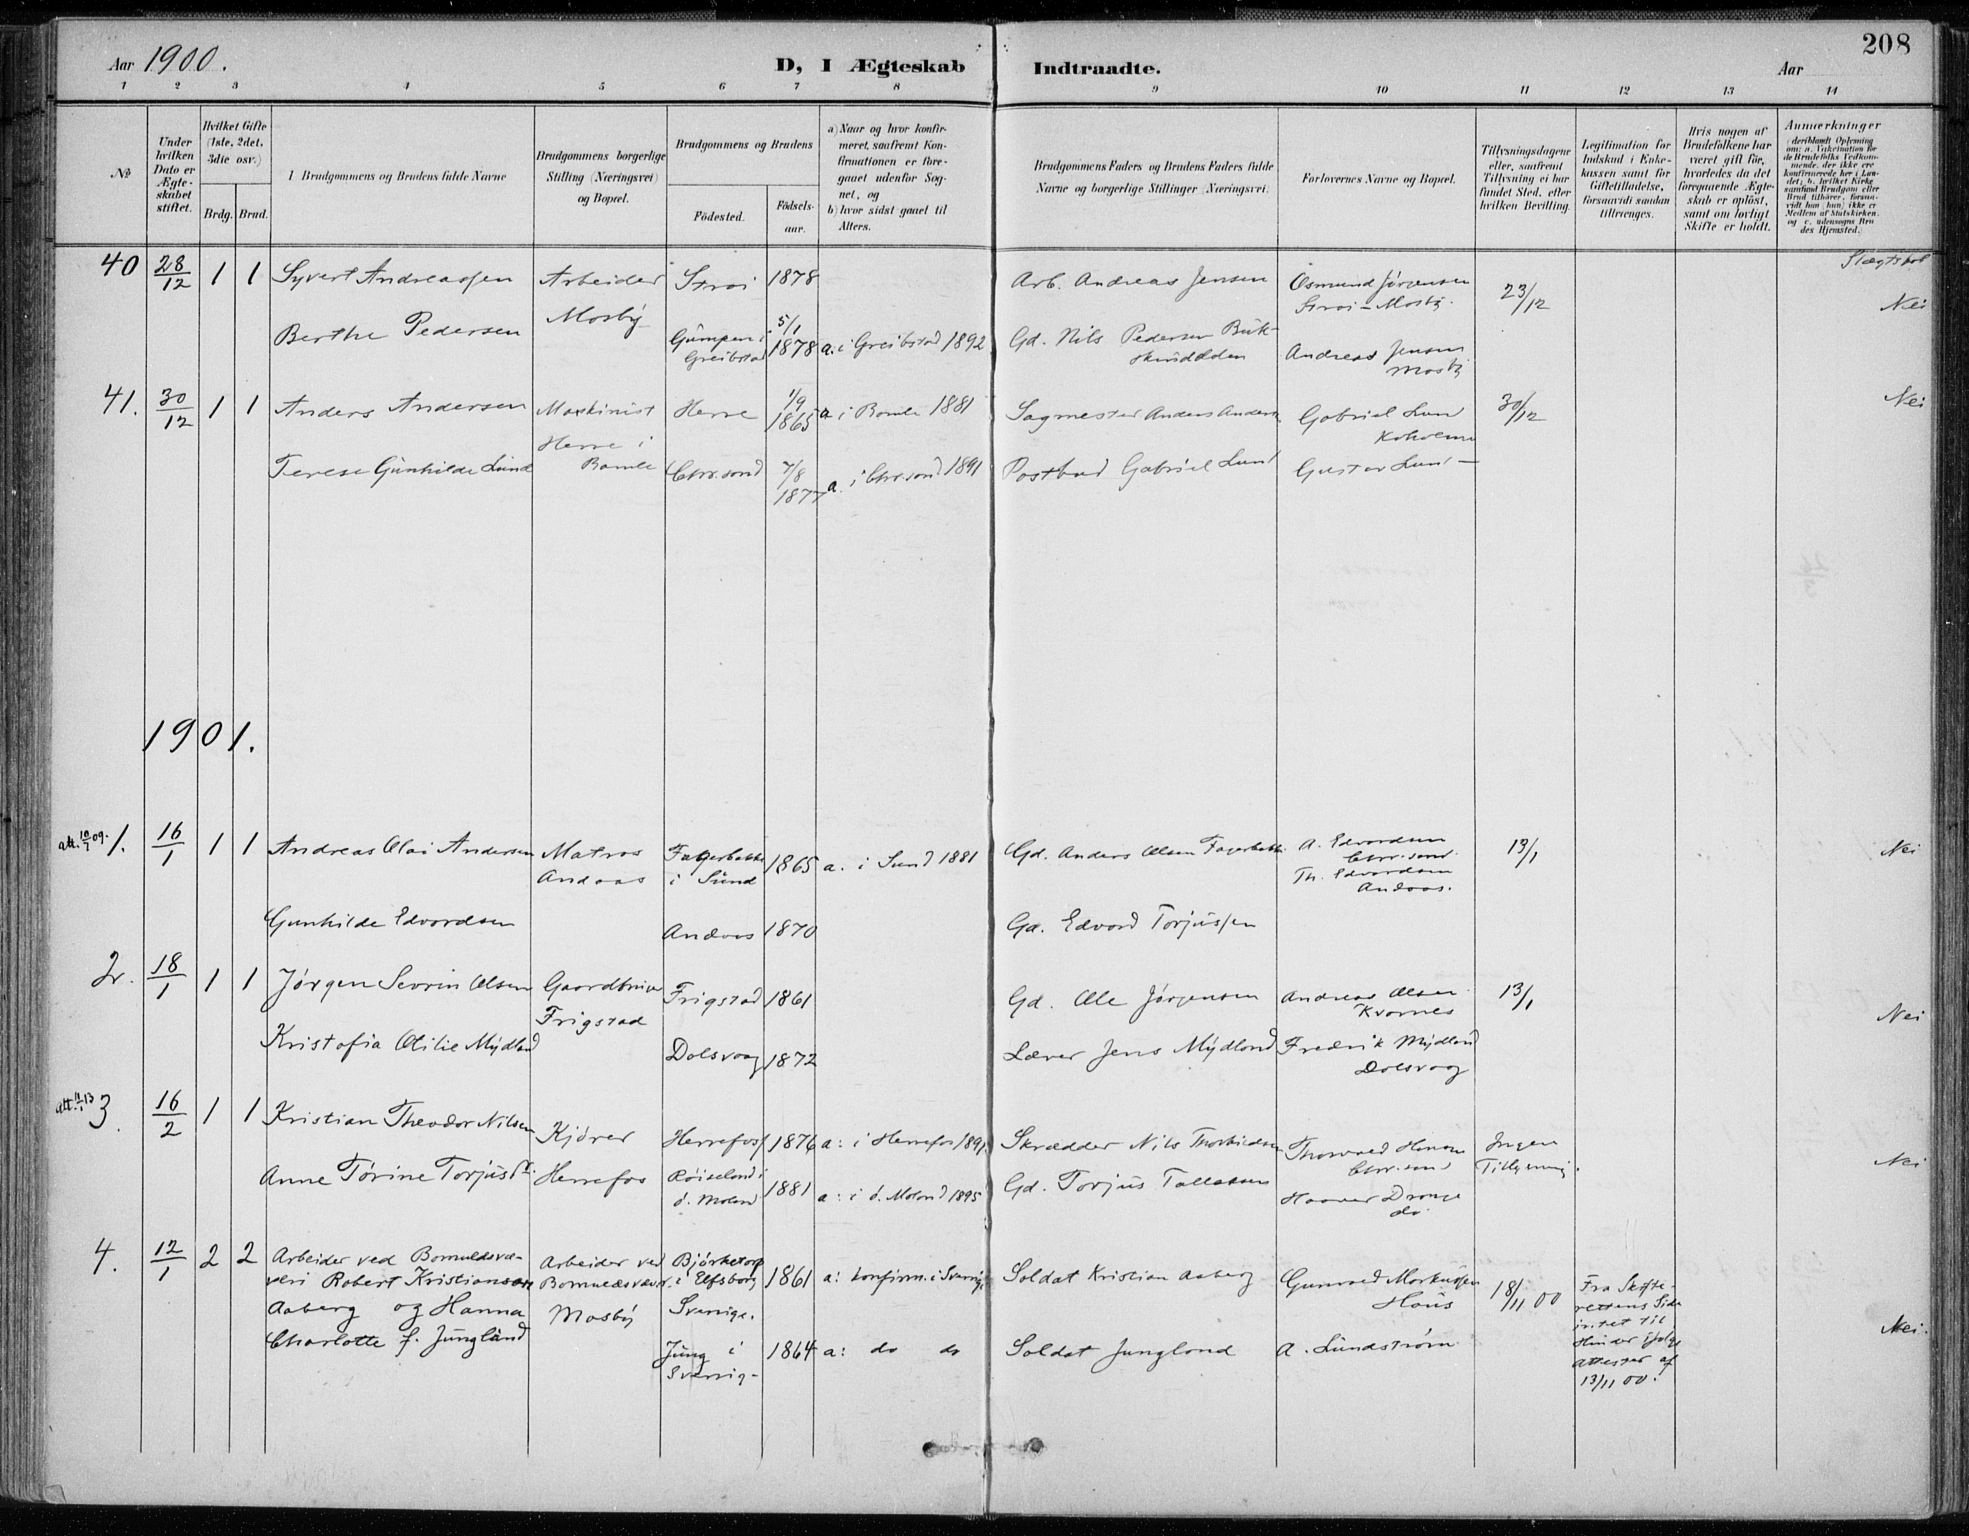 208
Aar 1900.
D, I Ægteskab Indtraadte.
Aar
1 2 3 4 5 6 7 8 9 10 11 12 13 14
No
Under hvilken Dato er Ægteskabet stiftet.
Hvilket Gifte (1ste, 2det, 3die osv.)
Brdg. Brud.
Brudgommens og Brudens fulde Navne
Brudgommens borgerlige Stilling (Næringsvei) og Bopæl.
Brudgommens og Brudens
Födested.
Födselsaar.
a) Naar og hvor konfirmeret, saafremt Konfirmationen er foregaaet udenfor Sognet, og
b) hvor sidst gaaet til Alters.
Brudgommens Faders og Brudens Faders fulde Navne og borgerlige Stillinger (Næringsvei).
Forlovernes Navne og Bopæl.
Tillysningsdagene eller, saafremt Tillysning ei har fundet Sted, efter hvilken Bevilling.
Legitimation for Indskud i Enkekassen samt for Giftetilladelse, forsaavidt saadan tiltrænges.
Hvis nogen af Brudefolkene har været gift för, hvorledes da det foregaaende Ægteskab er oplöst, samt om lovligt Skifte er holdt.
Anmærkninger
(deriblandt Oplysning om: a. Vakcination for de Brudefolks Vedkommende, der ikke ere konfirmerede her i Landet; b. hvilket Kirkesamfund Brudgom eller Brud tilhörer, forsaavidt han (hun) ikke er Medlem af Statskirken, og c. udensogns Brudes Hjemsted.)
Slægtskab
40 28/12 1 1 Syvert Andreassen Arbeider Strai 1878 Arb. Andreas Jensen Osmund Jørgensen 23/12 Nei
Mosby Strai - Mosby.
Berthe Pedersen Gumpen i Greibstad 5/1 1878 a. i Greibstad 1892 Gd. Nils Pedersen Andreas Jensen Mosby
41. 30/12 1 1 Anders Andersen Maskinist Herre 1/9 1865 a i Bamle 1881 Sagmester Anders Andersen Gabriel Lund 30/12 Nei
Herre i Bamle Kokolene
Terese Gunhilde Lund Chr.sand 7/8 1877 a. i Chr.sand 1891 Postbud Gabriel Lund Gustav Lund —
1901.
att. 10/7 09. 1. 16/1 1 1 Andreas Olai Andersen Matros Fagerbakke 1865 a. i Sund 1881 Gd. Anders Olsen Fagerbakke A. Edvardsen 13/1 Nei
Andaas i Sund Chr.sand
Th. Edvardsen
Andaas.
Gunhilde Edvardsen Andaas 1870 Gd. Edvard Torjussen
2. 18/1 1 1 Jørgen Severin Olsen Gaardbruger Frigstad 1861 Gd. Ole Jørgensen Andreas Olsen 13/1 Nei
Frigstad Kvarnes
Kristofia Otilie Mydland Dolsvaag 1872 Lærer Jens Mydland Fredrik Mydland
Dolsvaag
att. 11/1 13 3. 16/2 1 1 Kristian Theodor Nilsen Kjører Herrefos 1876 a: i Herrefos 1891 Skrædder Nils Thorkildsen Thorvald Hansen Ingen Nei
Chr.sand Tillysning.
Anne Tørine Torjusdt. Herrefos Røiseland i ö. Moland 1881 a: i ö. Moland 1895 Gd. Torjus Tallaksen Haaver Drange
do
4. 12/1 2 2 Arbeider ved Bomuldsvæ- Arbeider ved Bjørketorp 1861 a: konfirm. i Sverige Soldat Kristian Aaberg Gunvald Markussen 18/11 00 Fra Skifte-
veri Robert Kristianson Bomuldsvæv. i Elfsborg Haus rettens Side
Aaberg og Hanna Mosby Sverige. intet til
Charlotte f. Jungland Jung i 1864 a: do do Soldat Jungland A. Lundstrøm Hinder ifølge Nei.
Sverrig- Attester af
13/11 00.